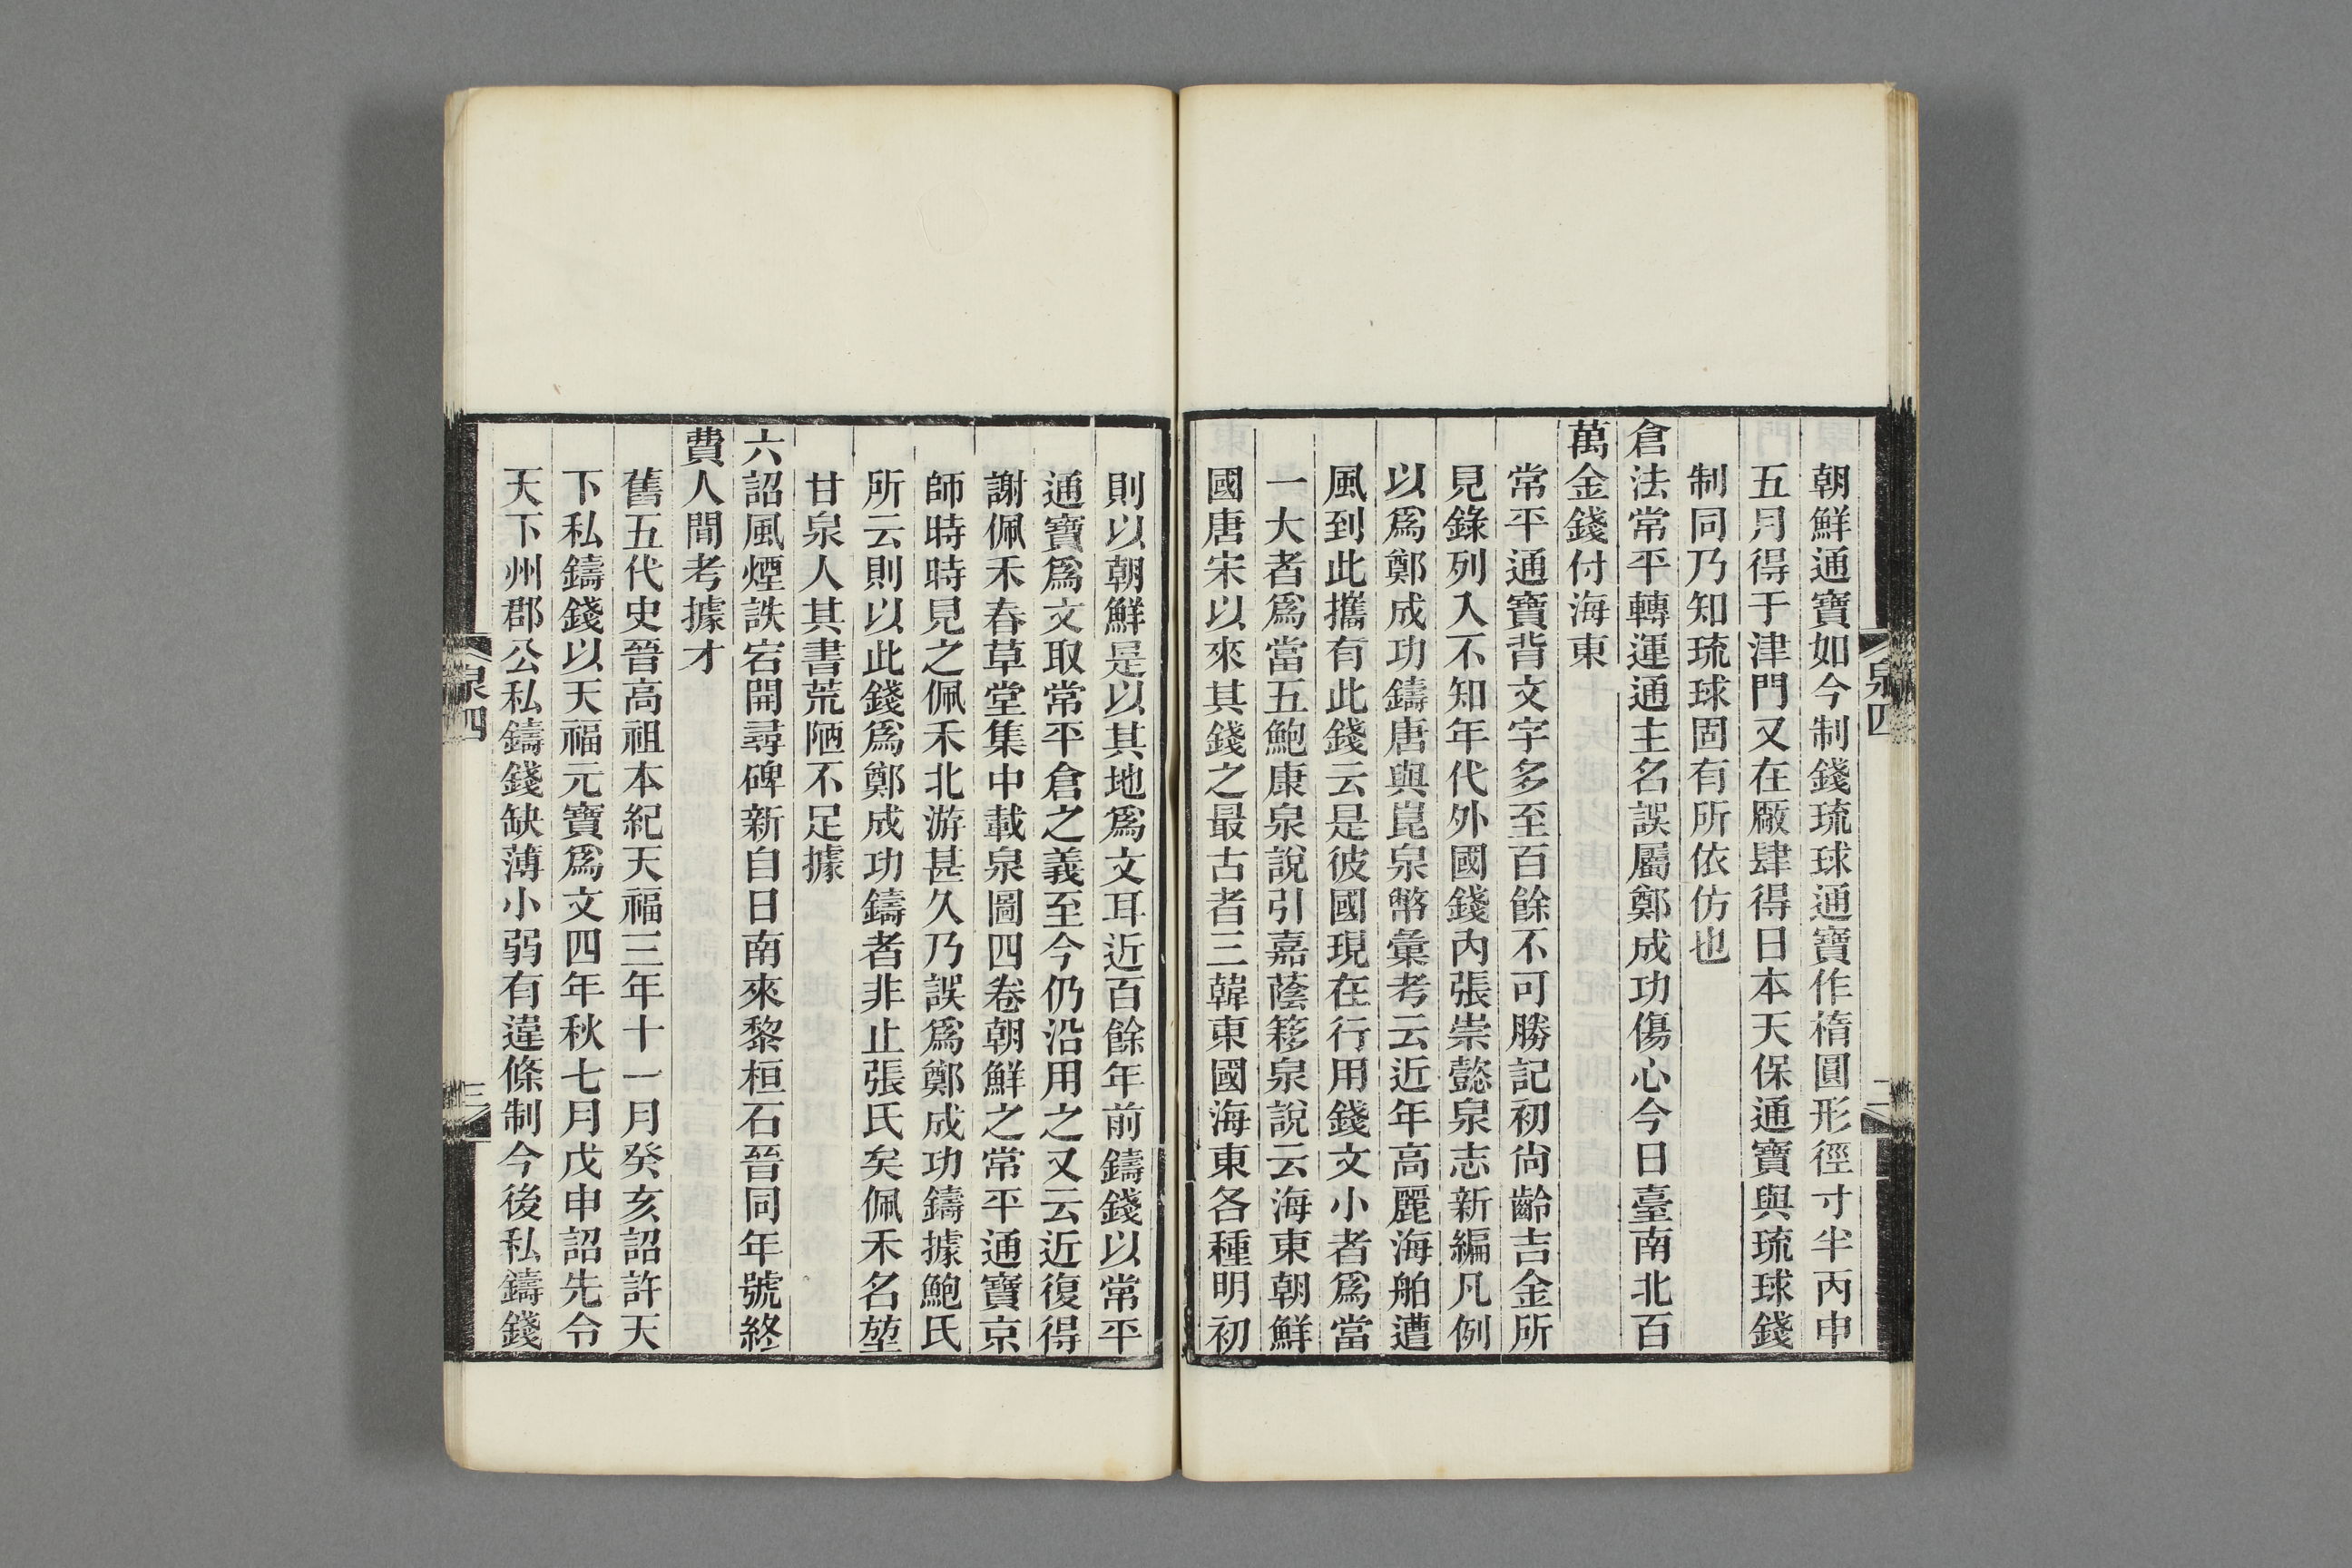 朝鮮通寶如今制錢琉球通寶作楕圓形徑寸半丙申
五月得于津門又在廠肆得日本天保通寶與琉球錢
制同乃知琉球固有所依仿也
倉法常平轉運通主名誤屬鄭成功傷心今日臺南北百
萬金錢付海東
常平通寶背文字多至百餘不可勝記初尚齡吉金所
見錄列入不知年代外國錢內張崇懿泉志新編凡例
以爲鄭成功鑄唐與崑泉幣彙考云近年高麗海舶遭
風到此攜有此錢云是彼國現在行用錢文小者爲當
一大者爲當五鮑康泉說引嘉蔭簃泉說云海東朝鮮
國唐宋以來其錢之最古者三韓東國海東各種明初
泉四
二
則以朝鮮是以其地爲文耳近百餘年前鑄錢以常平
通寶爲文取常平倉之義至今仍沿用之又云近復得
謝佩禾春草堂集中載泉圖四卷朝鮮之常平通寶京
師時時見之佩禾北游甚久乃誤爲鄭成功鑄據鮑氏
所云則以此錢爲鄭成功鑄者非止張氏矣佩禾名堃
甘泉人其書荒陋不足據
六詔風煙詄宕開尋碑新自日南來黎桓石晉同年號終
費人間考據才
舊五代史晉高祖本紀天福三年十一月癸亥詔許天
下私鑄錢以天福元寶爲文四年秋七月戊申詔先令
天下州郡公私鑄錢缺薄小弱有違條制今後私鑄錢
泉四
三